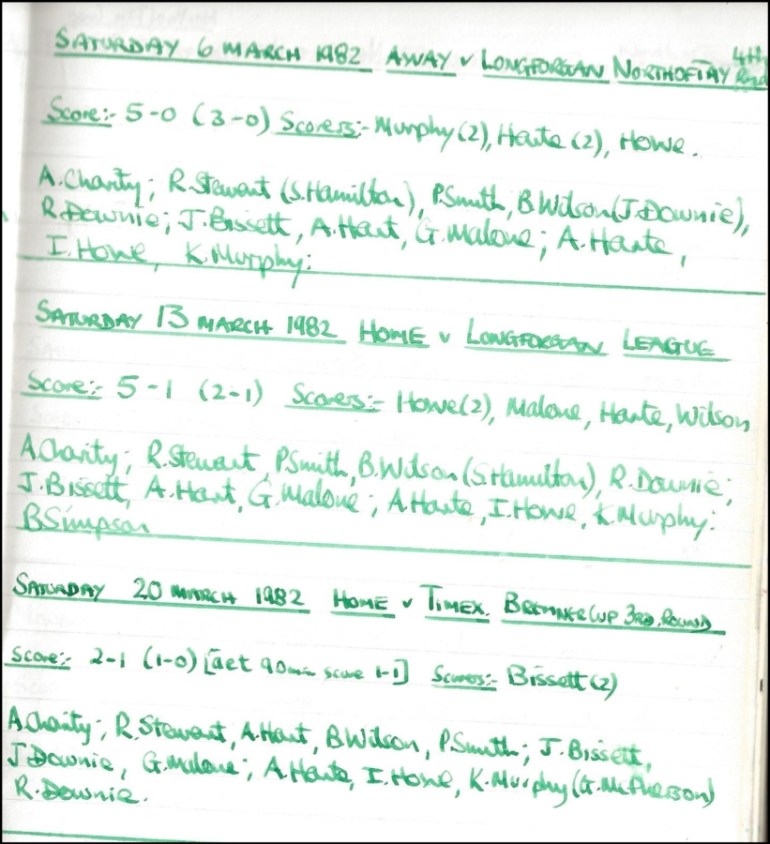 SATURDAY 6 MARCH 1982 AWAY v LONGFORGAN NORTHOFTAY 4th Rnd
Score:- 5-0 (3-0) Scorers:- Murphy(2), Harte(2), Howe.
A.Charity; R.Stewart (S.Hamilton), P.Smith, B.Wilson(J.Downie),
R.Downie; J.Bissett, A.Hart, G.Malone; A.Harte,
I.Howe, K.Murphy:
SATURDAY 13 MARCH 1982 HOME v LONGFORGAN LEAGUE
Score:- 5-1 (2-1) Scorers:- Howe(2), Malone, Harte, Wilson
A.Charity; R.Stewart, P.Smith, B.Wilson(S.Hamilton), R.Downie;
J.Bissett, A.Hart, G.Malone; A.Harte, I.Howe, K.Murphy:
B.Simpson
SATURDAY 20 MARCH 1982 HOME v TIMEX. BREMNER CUP 3RD.ROUND
Score:- 2-1 (1-0) [aet 90min score 1-1] Scorers:- Bissett(2)
A.Charity; R.Stewart, A.Hart, B.Wilson, P.Smith; J.Bissett,
J.Downie, G.Malone; A.Harte, I.Howe, K.Murphy(G.McPherson)
R.Downie.